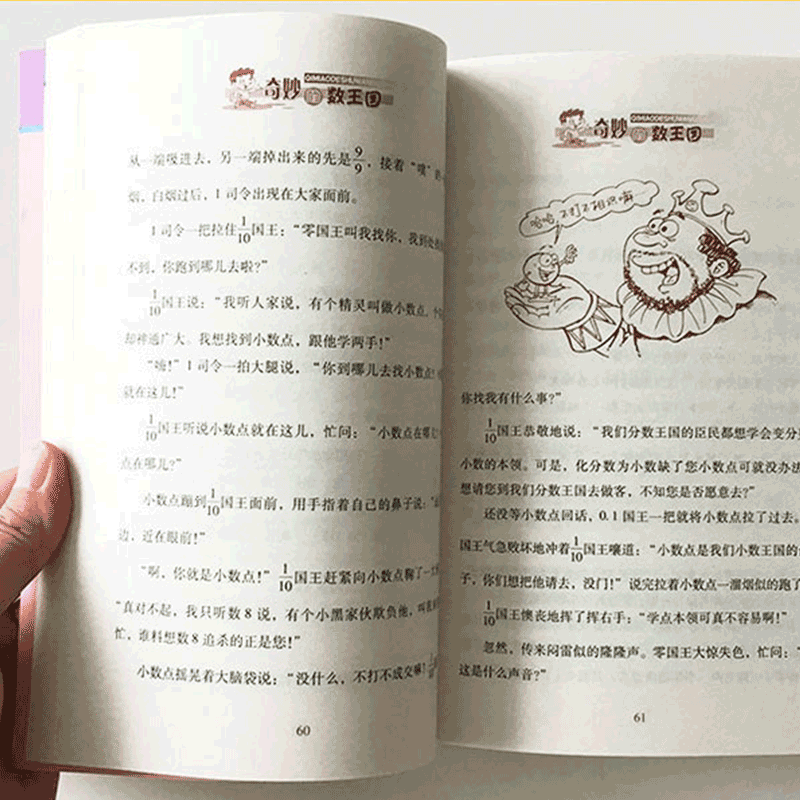 QIMIAODESHUWANG
奇妙的数王国
从一端吸进去，另一端掉出来的先是9/9，接着“噗”的
烟，白烟过后，1司令出现在大家面前。
1司令一把拉住1/10国王：“零国王叫我找你，我到处
不到，你跑到哪儿去啦？”
1/10国王说：“我听人家说，有个精灵叫做小数点，个
却神通广大。我想找到小数点，跟他学两手！”
“嗨！”1司令一拍大腿说，“你到哪儿去找小数点！
就在这儿！”
1/10国王听说小数点就在这儿，忙问：“小数点在哪
点在哪儿？”
小数点蹦到1/10国王面前，用手指着自己的鼻子说：“
边，近在眼前！”
“啊，你就是小数点！”1/10国王赶紧向小数点鞠了一
“真对不起，我只听数8说，有个小黑家伙欺负他，叫我
忙，谁料想数8追杀的正是您！”
小数点摇晃着大脑袋说：“没什么，不打不成交嘛！
60
奇妙的数王国
哈哈 不打不相识嘛
你找我有什么事？”
1/10国王恭敬地说：“我们分数王国的臣民都想学会变分
小数的本领。可是，化分数为小数缺了您小数点可就没办法
想请您到我们分数王国去做客，不知您是否愿意去？”
还没等小数点回话，0.1国王一把就将小数点拉了过去。
国王气急败坏地冲着1/10国王嚷道：“小数点是我们小数王国的
子，你们想把他请去，没门！”说完拉着小数点一溜烟似的跑了
1/10国王懊丧地挥了挥右手：“学点本领可真不容易啊！”
忽然，传来闷雷似的隆隆声。零国王大惊失色，忙问：“
这是什么声音？”
61